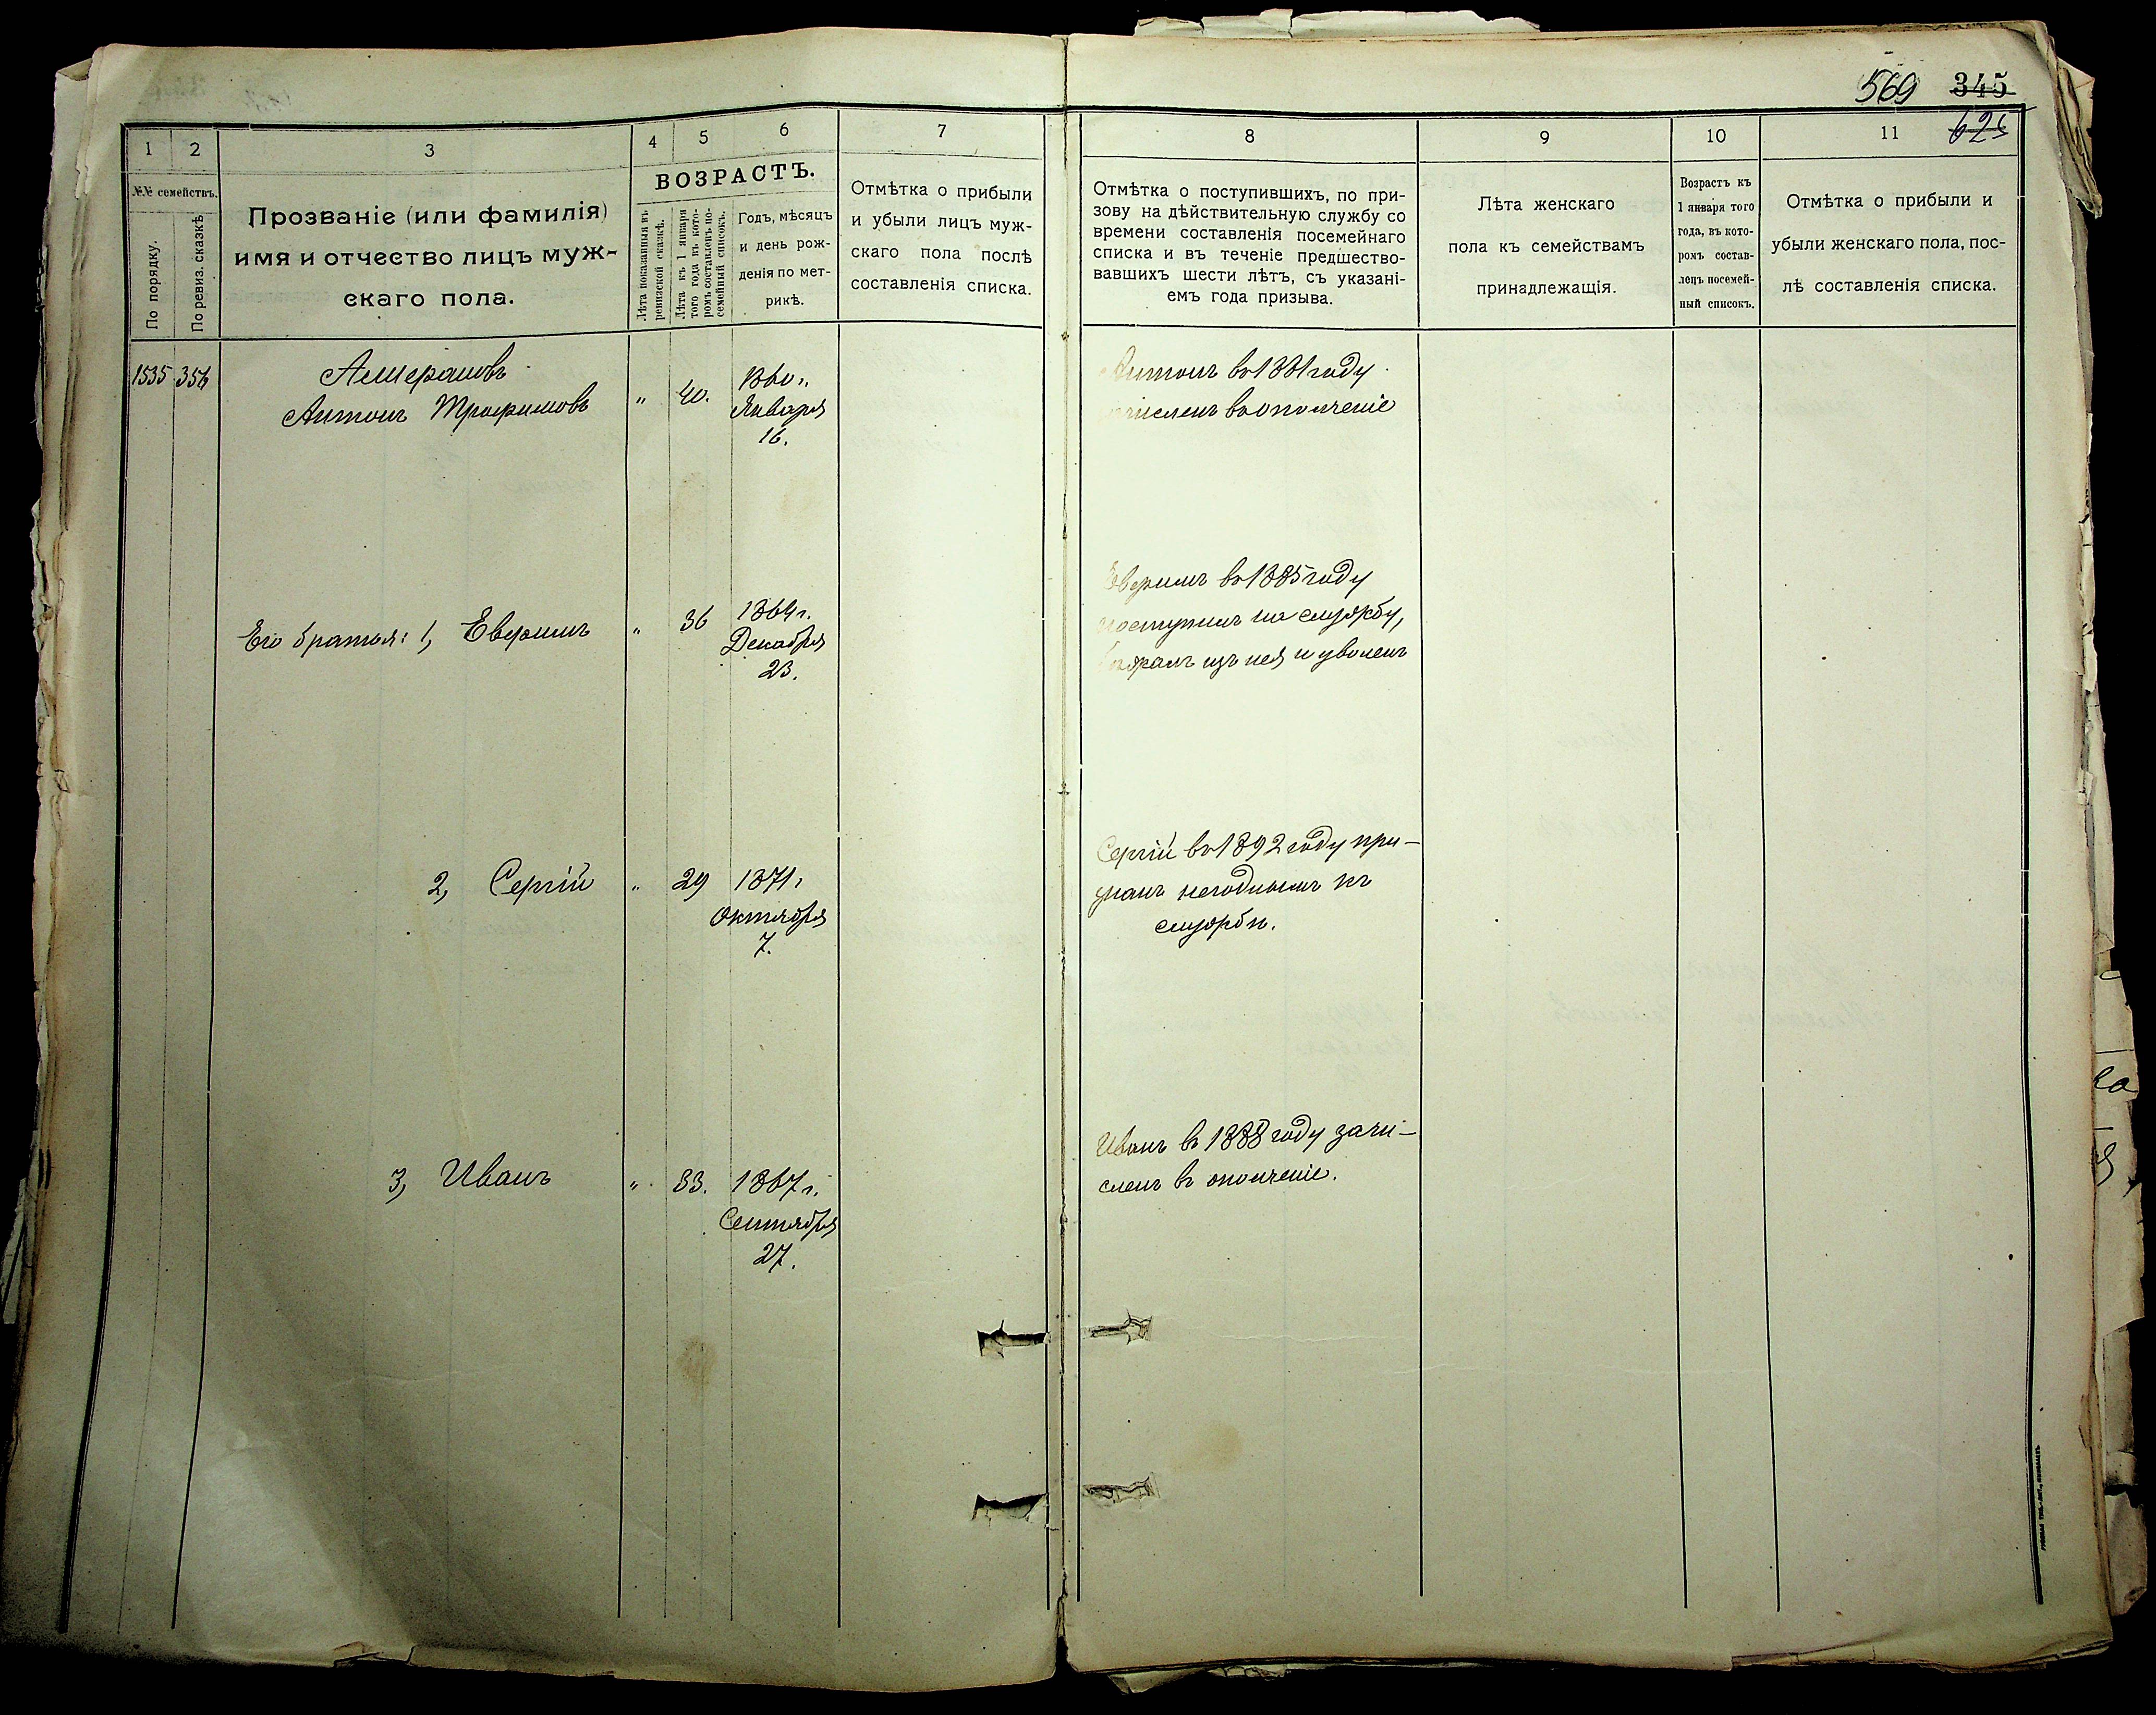 569 345
625
1 2 3 4 5 6 7 8 9 10 11
№№ семействъ.
По порядку.
По ревиз. сказкѣ
Прозваніе (или фамилія)
имя и отчество лицъ муж-
скаго пола.
ВОЗРАСТЪ.
Лѣта показанныя въ
ревизской сказкѣ.
Лѣта къ 1 января
того года въ кото-
ромъ составленъ по-
семейный списокъ.
Годъ, мѣсяцъ
и день рож-
денія по мет-
рикѣ.
Отмѣтка о прибыли
и убыли лицъ муж-
скаго пола послѣ
составленія списка.
Отмѣтка о поступившихъ, по при-
зову на дѣйствительную службу со
времени составленія посемейнаго
списка и въ теченіе предшество-
вавшихъ шести лѣтъ, съ указані-
емъ года призыва.
Лѣта женскаго
пола къ семействамъ
принадлежащія.
Возрастъ къ
1 января того
года, въ кото-
ромъ состав-
ленъ посемей-
ный списокъ.
Отмѣтка о прибыли и
убыли женскаго пола, пос-
лѣ составленія списка.
1535 356
Антонъ Трофимовъ
" 40.
1860 г.
Января
16.
Антонъ въ 1881 году
зачисленъ въ ополченіе
Его братья: 1, Евфимъ
" 36
1864 г.
Декабря
23.
Евфимъ въ 1885 году
поступилъ на службу,
бѣжалъ изъ нея и уволенъ
2, Сергій
" 29
1871 г
Октября
7.
Сергій въ 1892 году при-
знанъ негоднымъ къ
службѣ.
3, Иванъ
" 33.
1867 г.
Сентября
27.
Иванъ въ 1888 году зачи-
сленъ въ ополченіе.